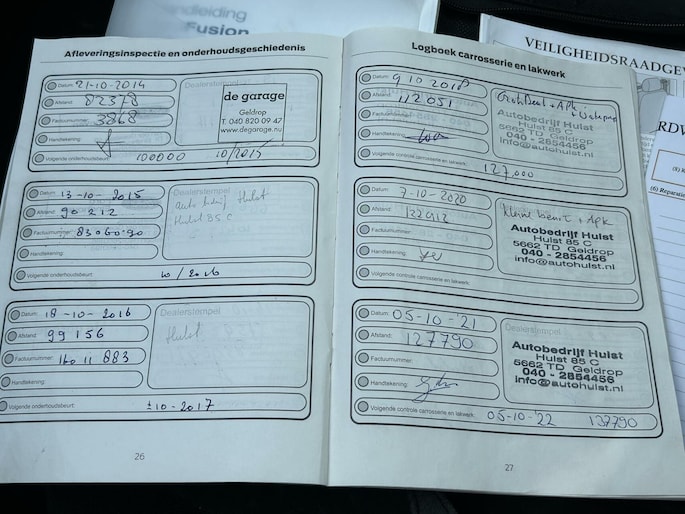 andleiding
Fusion
VEILIGHEIDSRAADGE
Afleveringsinspectie en onderhoudsgeschiedenis
Datum: 21-10-2014
Afstand: 82378
Factuurnummer: 3868
Handtekening:
Volgende onderhoudsbeurt: 100000 10/2015
Dealerstempel
de garage
Geldrop
T. 040 820 09 47
www.degarage.nu
Datum: 13-10-2015
Afstand: 90.212
Factuurnummer: 83060.90
Handtekening:
Volgende onderhoudsbeurt: 10/2016
Dealerstempel
auto bedrijf Hulst
Hulst 85 C
Datum: 18-10-2016
Afstand: 99156
Factuurnummer: 16011883
Handtekening:
Volgende onderhoudsbeurt: ±10-2017
Dealerstempel
Hulst
26
Logboek carrosserie en lakwerk
Datum: 9 10 2018
Afstand: 112051
Factuurnummer:
Handtekening:
Volgende controle carrosserie en lakwerk: 127.000
+ Apk
Autobedrijf Hulst
Hulst 85 C
5662 TD Geldrop
040 - 2854456
info@autohulst.nl
Datum: 7-10-2020
Afstand: 122912
Factuurnummer:
Handtekening:
Volgende controle carrosserie en lakwerk:
Kleine beurt + Apk
Autobedrijf Hulst
Hulst 85 C
5662 TD Geldrop
040 - 2854456
info@autohulst.nl
Datum: 05-10-21
Afstand: 127790
Factuurnummer:
Handtekening:
Volgende controle carrosserie en lakwerk: 05-10-'22 137790
Dealerstempel
Autobedrijf Hulst
Hulst 85 C
5662 TD Geldrop
040 - 2854456
info@autohulst.nl
27
RDW
(6) Reparatie